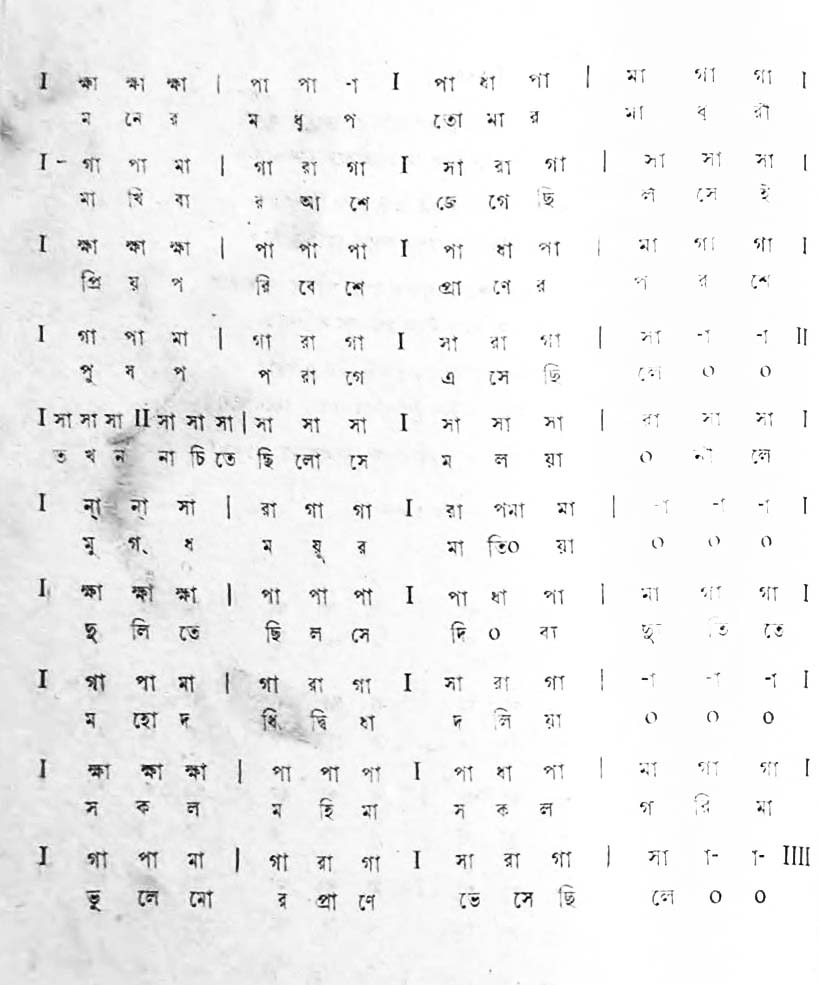 I ক্ষা ক্ষা ক্ষা | পা পা -া I পা ধা পা | মা গা গা I
ম নে র ম ধু প তো মার মা ধু রী
I - গা পা মা | গা রা গা I সা রা গা | সা সা সা I
মা খি বা র আ শে জে গে ছি ল সে ই
I ক্ষা ক্ষা ক্ষা | পা পা পা I পা ধা পা | মা গা গা I
প্রি য় প রি বে শে প্রা ণে র প র শে
I গা পা মা | গা রা গা I সা রা গা | সা -া -া II
পু ষ প প রা গে এ সে ছি লে ০ ০
I সা সা সা II সা সা সা | সা সা সা I সা সা সা | রা সা সা I
ত খ ন না চি তে ছি লো সে ম ল য়া ০ নী লে
I ন্া ন্া সা | রা গা গা I রা পমা মা | -া -া -া I
মু গ্ ধ ম য়ূ র মা তি০ য়া ০ ০ ০
I ক্ষা ক্ষা ক্ষা | পা পা পা I পা ধা পা | মা গা গা I
ছু লি তে ছি ল সে দি ০ বা ছ্যু তি তে
I গা পা মা | গা রা গা I সা রা গা | -া -া -া I
ম হো দ ধি দ্বি ধা দ লি য়া ০ ০ ০
I ক্ষা ক্ষা ক্ষা | পা পা পা I পা ধা পা | মা গা গা I
স ক ল ম হি মা স ক ল গ রি মা
I গা পা মা | গা রা গা I সা রা গা | সা া- া- IIII
ভু লে মো র প্রা ণে ভে সে ছি লে ০ ০